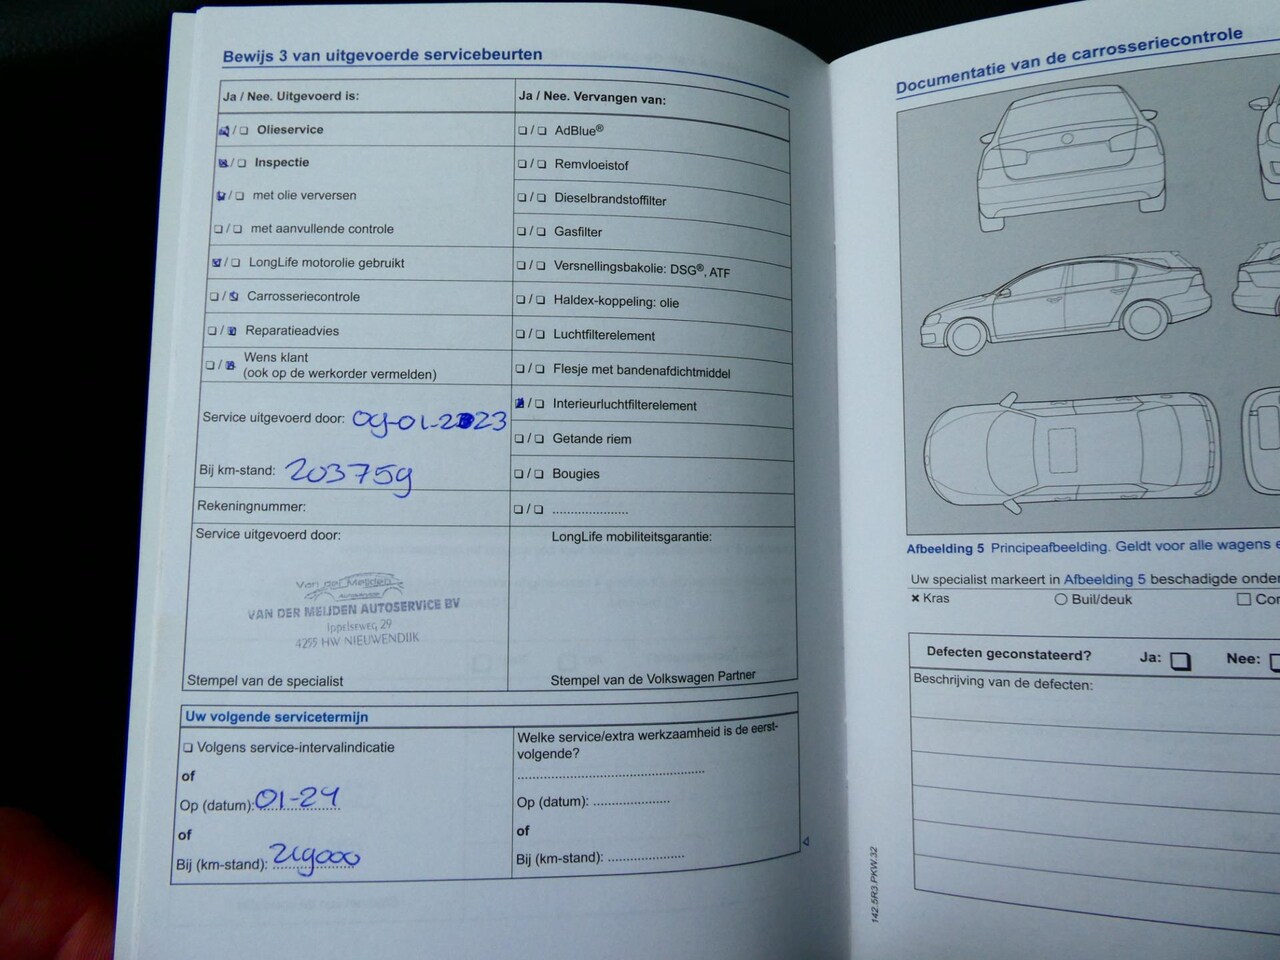 Bewijs 3 van uitgevoerde servicebeurten
Ja / Nee. Uitgevoerd is:
/ Olieservice
/ Inspectie
/ met olie verversen
/ met aanvullende controle
/ LongLife motorolie gebruikt
/ Carrosseriecontrole
/ Reparatieadvies
/ Wens klant
(ook op de werkorder vermelden)
Service uitgevoerd door: 09-01-2023
Bij km-stand: 203759
Rekeningnummer:
Service uitgevoerd door:
Van der Meijden
Autoservice
VAN DER MEIJDEN AUTOSERVICE BV
Ippelseweg 29
4255 HW NIEUWENDIJK
Stempel van de specialist
Ja / Nee. Vervangen van:
/ AdBlue®
/ Remvloeistof
/ Dieselbrandstoffilter
/ Gasfilter
/ Versnellingsbakolie: DSG®, ATF
/ Haldex-koppeling: olie
/ Luchtfilterelement
/ Flesje met bandenafdichtmiddel
/ Interieurluchtfilterelement
/ Getande riem
/ Bougies
/ .....................
LongLife mobiliteitsgarantie:
Stempel van de Volkswagen Partner
Uw volgende servicetermijn
Volgens service-intervalindicatie
of
Op (datum): 01-24
of
Bij (km-stand): 219000
Welke service/extra werkzaamheid is de eerst-
volgende?
Op (datum): .....................
of
Bij (km-stand): .....................
Documentatie van de carrosseriecontrole
Afbeelding 5 Principeafbeelding. Geldt voor alle wagens
Uw specialist markeert in Afbeelding 5 beschadigde
× Kras
Buil/deuk
Defecten geconstateerd? Ja: Nee:
Beschrijving van de defecten:
142.5R3.PKW.32